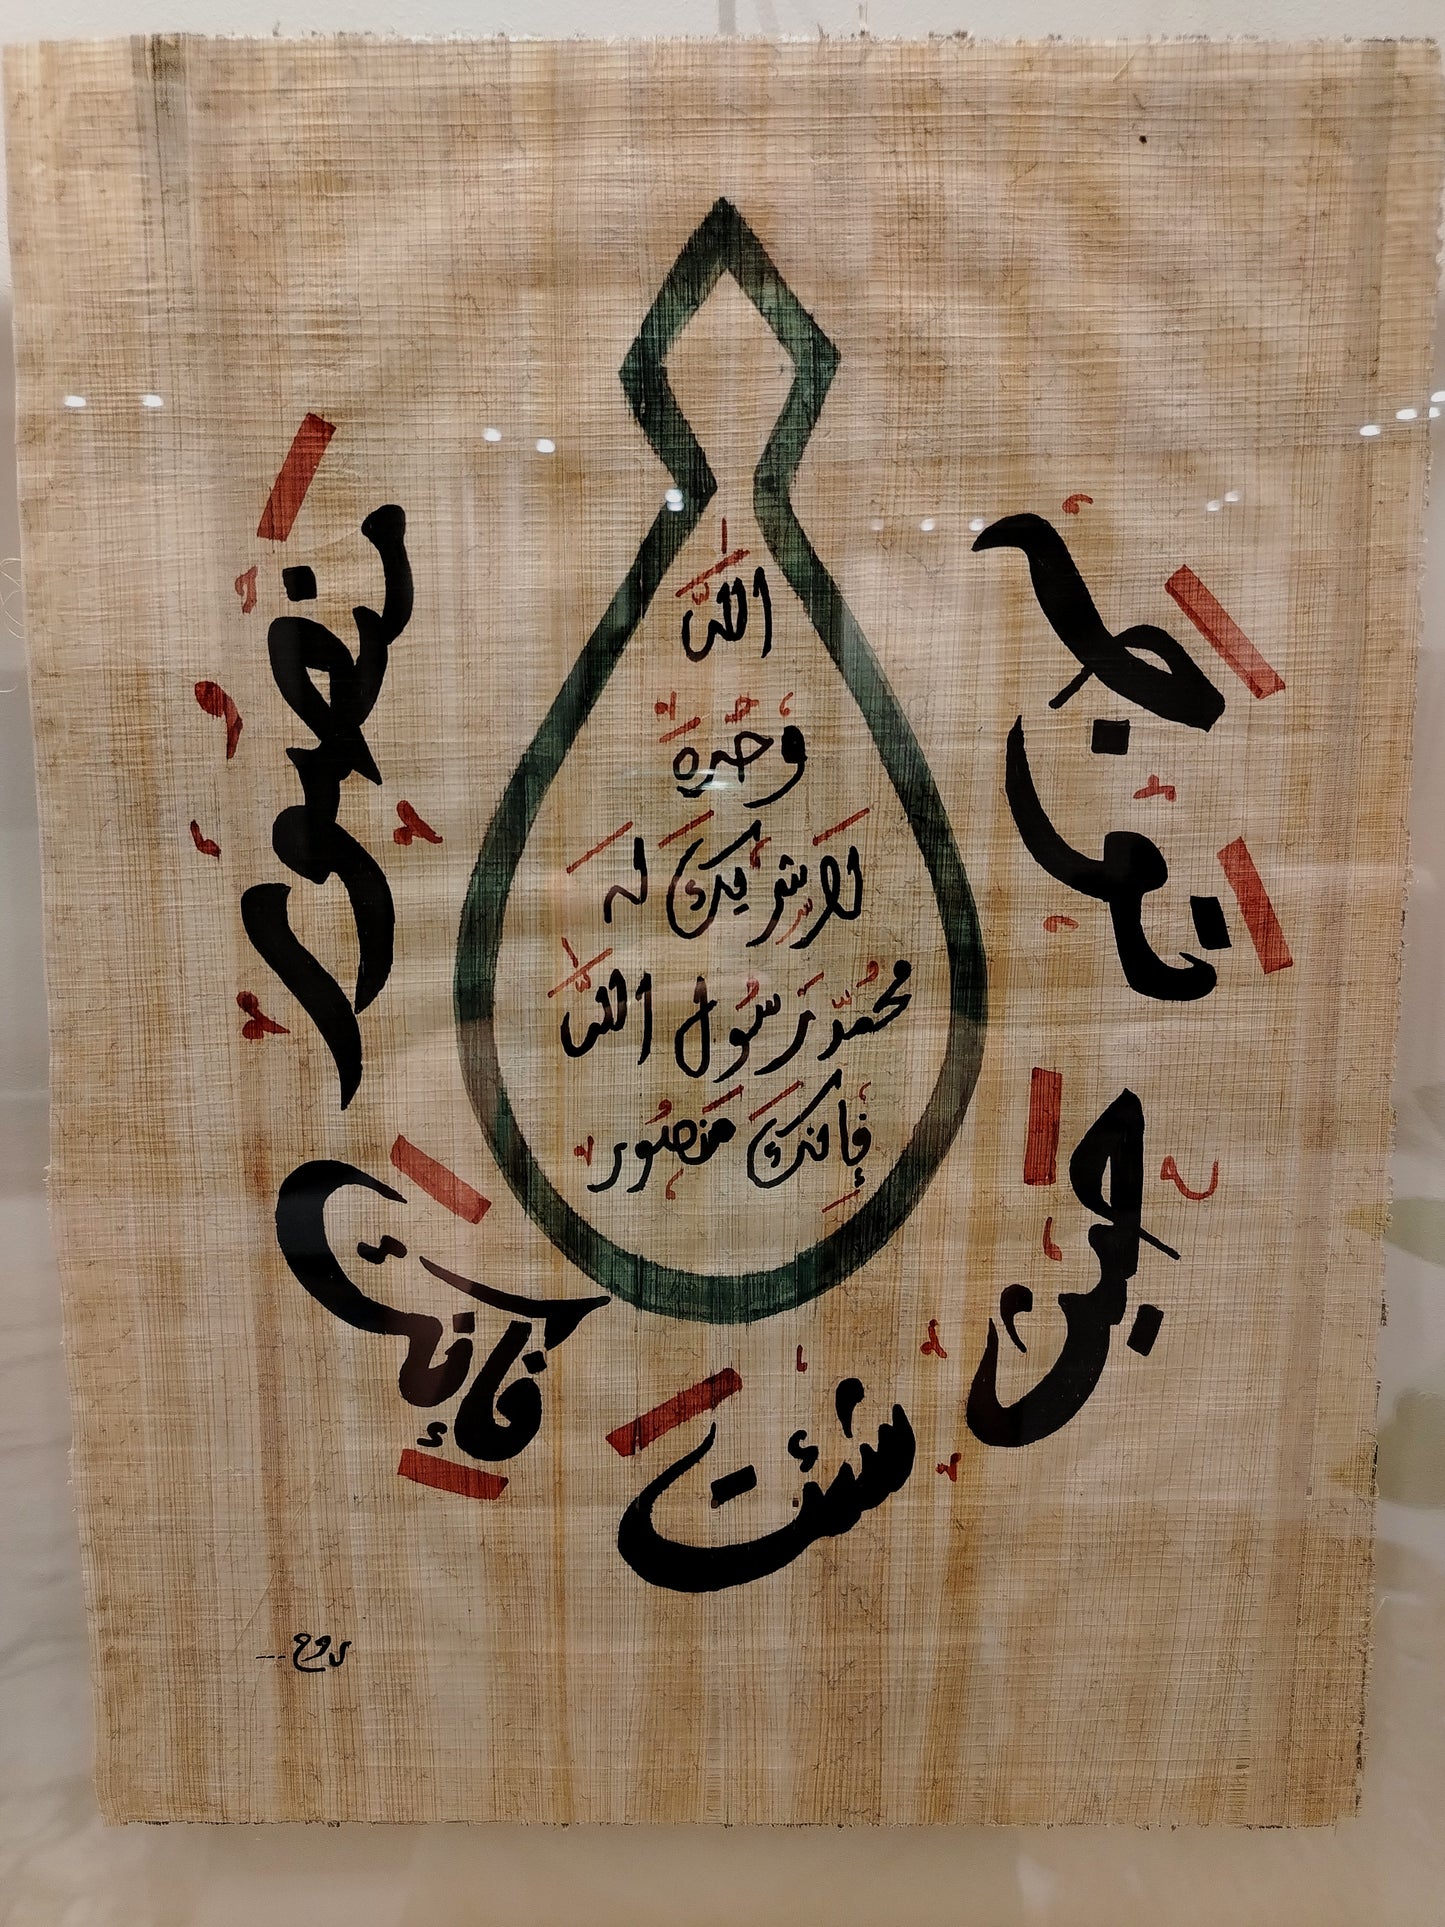 اللَّه
وَحْدَهُ
لَا شَرِيكَ لَهُ
مُحَمَّد رَسُول اللَّه
فَإِنَّكَ مَنْصُور
حَيْثُ
شِئْتَ
فَإِنَّكَ
مَنْصُورٌ
روح